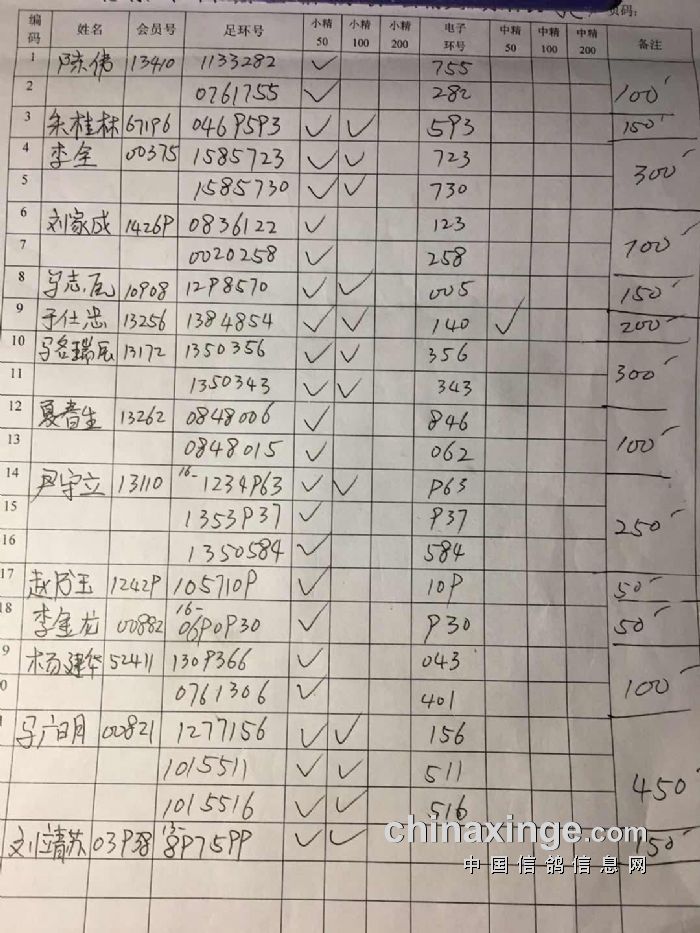 页码:
编码 姓名 会员号 足环号 小精50 小精100 小精200 电子环号 中精50 中精100 中精200 备注
1 陈伟 13410 1133282 ✓ 755
2 0761755 ✓ 282 100
3 朱桂林 67196 0469593 ✓ ✓ 593 150
4 李全 00375 1585723 ✓ ✓ 723
5 1585730 ✓ ✓ 730 300
6 刘家成 14269 0836122 ✓ 123
7 0020258 ✓ 258 100
8 10908 1298570 ✓ ✓ 005 150
9 于仕忠 13256 1384854 ✓ ✓ 140 ✓ 200
10 13172 1350356 ✓ ✓ 356
11 1350343 ✓ ✓ 343 300
12 夏春生 13262 0848006 ✓ 846
13 0848015 ✓ 062 100
14 尹守立 13110 16-1234963 ✓ ✓ 963
15 1353937 ✓ 937
16 1350584 ✓ 584 250
17 12429 1057109 ✓ 109 50
18 李金龙 00882 16-0690930 ✓ 930 50
9 杨建华 52411 1309366 ✓ 043
0 0761306 ✓ 401 100
00821 1277156 ✓ ✓ 156
1015511 ✓ ✓ 511
1015516 ✓ ✓ 516 450
刘靖苏 03938 13-897599 ✓ ✓ 150
chinaxinge.com
中国信鸽信息网